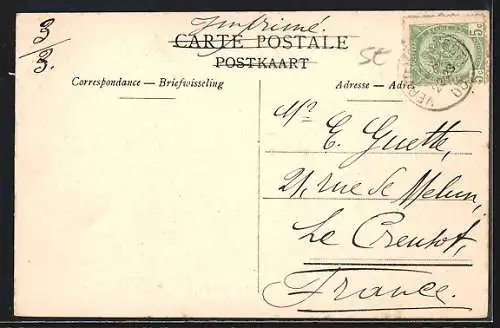 Imprimé.
CARTE POSTALE
POSTKAART
3/3.
5c
Correspondance — Briefwisseling
Adresse — Adres
5c
Mr
E. Guette,
21, rue de Melun,
Le Creusot,
France.